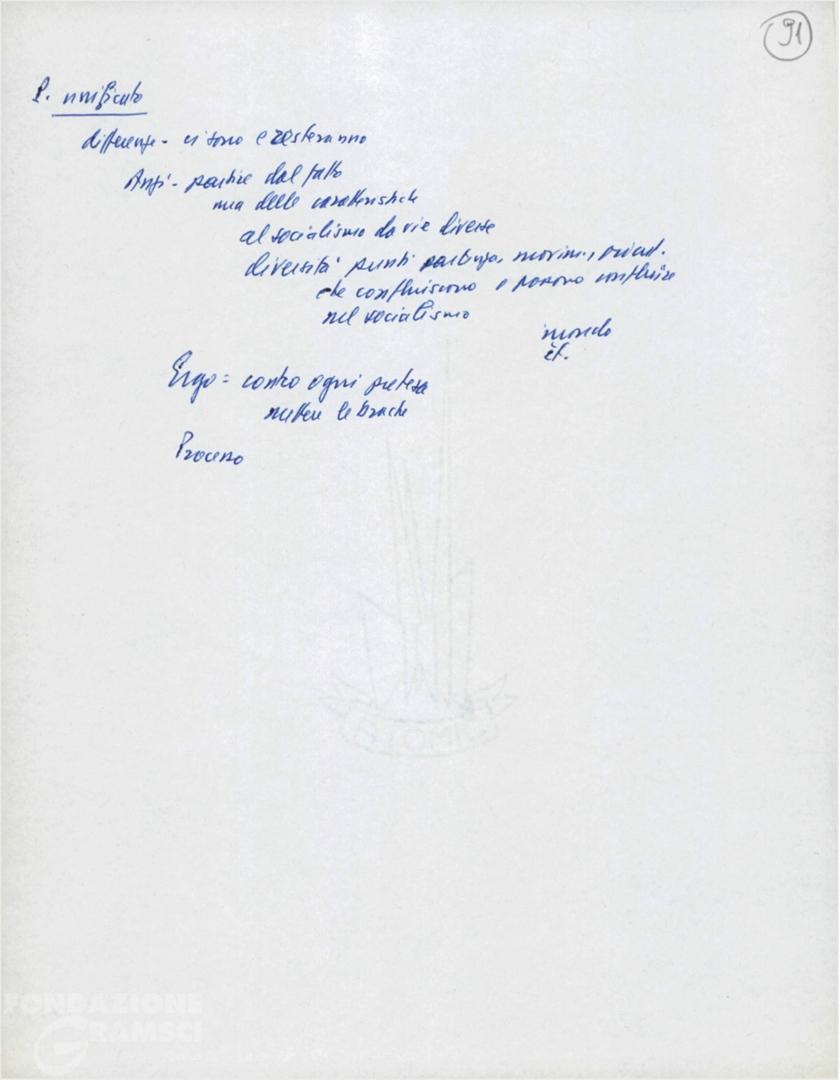 91
P. unificato
differenze - ci sono e resteranno
Anzi - partire dal fatto
una delle caratteristiche
al socialismo da vie diverse
diversità punti partenza, movim.,
che confluiscono e possono confluire
nel socialismo
mondo
it.
Ergo = contro ogni pretesa
mettere le brache
Processo
ATOMIC
FONDAZIONE
GRAMSCI